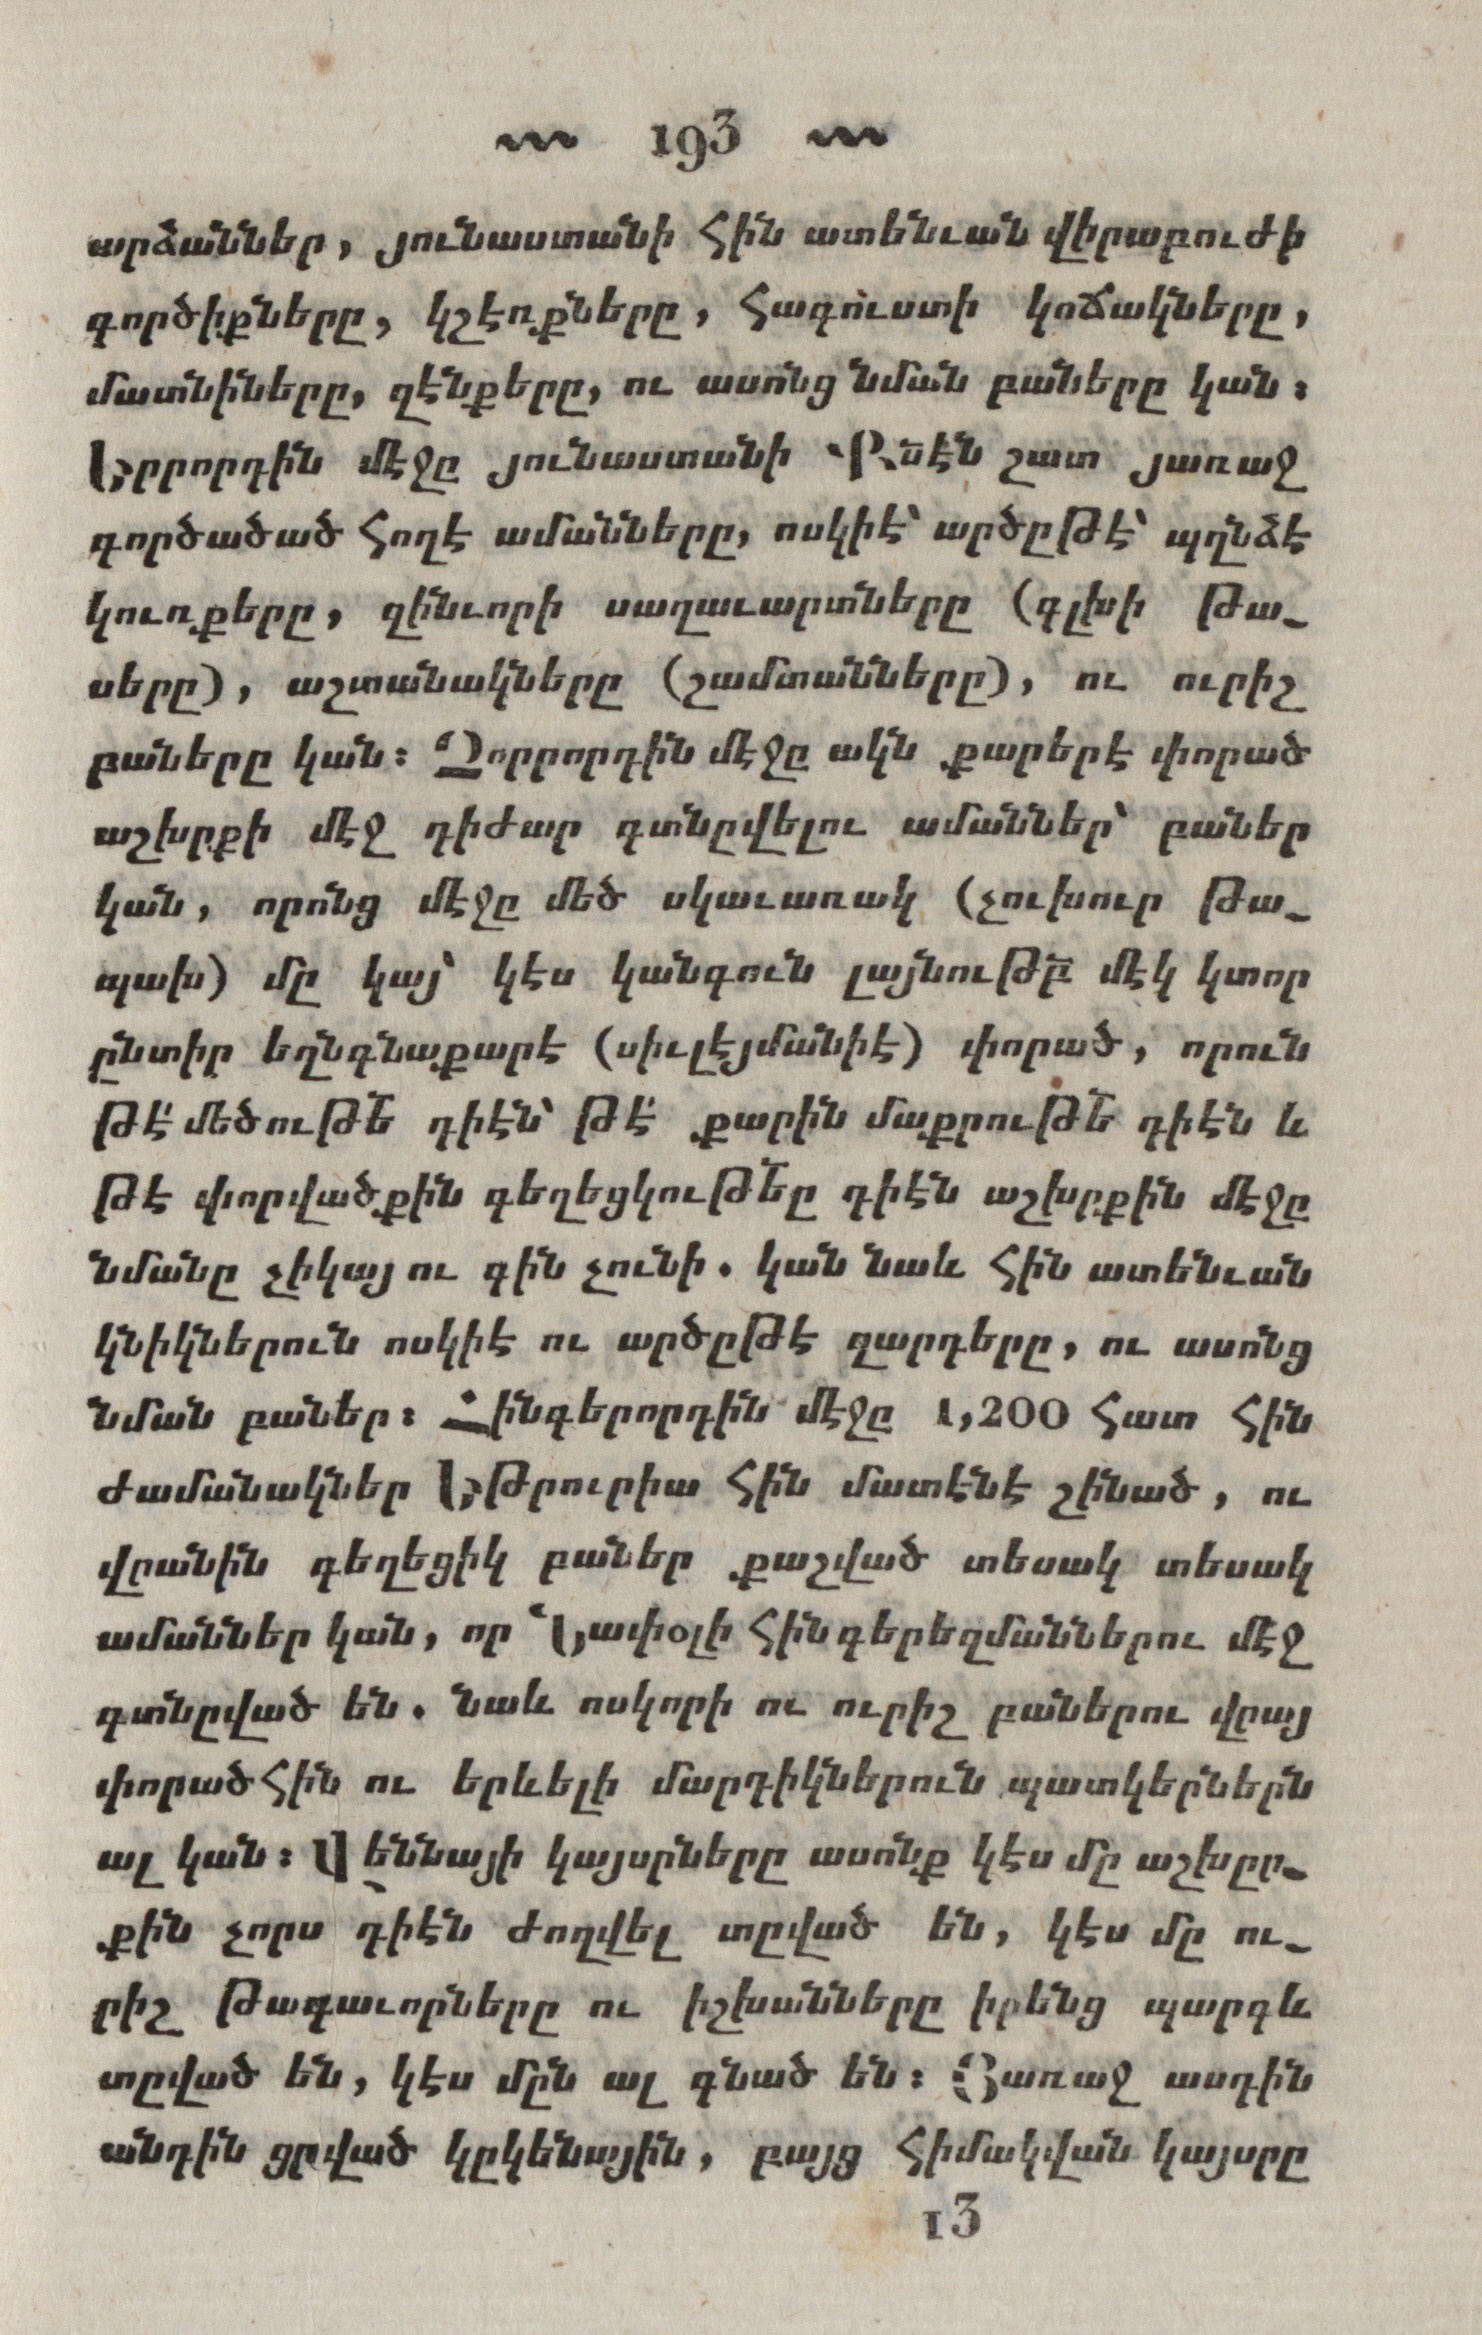 193
արձաններ, յունաստանի հին ատենւան վիրաբուժի
գործիքները, կշէռքները, հագուստի կոճակները,
մատնիները, զէնքերը, ու ասոնց նման բաները կան։
Երրորդին մէջը յունաստանի Քսէն շատ յառաջ
գործածած հողէ ամանները, ոսկիէ՝ արծըթէ՝ պղնձէ
կուռքերը, զինւորի սաղաւարտները (գլխի թա-
սերը), աշտանակները (շամտանները), ու ուրիշ
բաները կան։ Չորրորդին մէջը ակն քարերէ փորած
աշխրքի մէջ դիժար գտնըվելու ամաններ՝ բաներ
կան, որոնց մէջը մեծ սկաւառակ (չուխուր թա-
պախ) մը կայ՝ կէս կանգուն լայնութբ մէկ կտոր
ընտիր եղնգնաքարէ (սիւլէյմանիէ) փորած, որուն
թէ՛ մեծութե դիէն՝ թէ՛ քարին մաքրութե դիէն և
թէ փորվածքին գեղեցկութեը դիէն աշխրքին մէջը
նմանը չիկայ ու գին չունի. կան նաև հին ատենւան
կնիկներուն ոսկիէ ու արծըթէ զարդերը, ու ասոնց
նման բաներ։ Հինգերորդին մէջը 1,200 հատ հին
ժամանակներ Եթրուրիա հին մատէնէ շինած, ու
վըանին գեղեցիկ բաներ քաշված տեսակ տեսակ
ամաններ կան, որ Նափօլի հին գերեզմաններու մէջ
գտնըված են. նաև ոսկորի ու ուրիշ բաներու վըայ
փորած հին ու երևելի մարդիկներուն պատկերներն
ալ կան։ Վէննայի կայսրները ասոնք կէս մը աշխըր-
քին չորս դիէն ժողվել տըված են, կէս մը ու-
րիշ թագաւորները ու իշխանները իրենց պարգև
տըված են, կէս մըն ալ գնած են։ Յառաջ ասդին
անդին ցրված կըկենային, բայց հիմակվան կայսրը
13